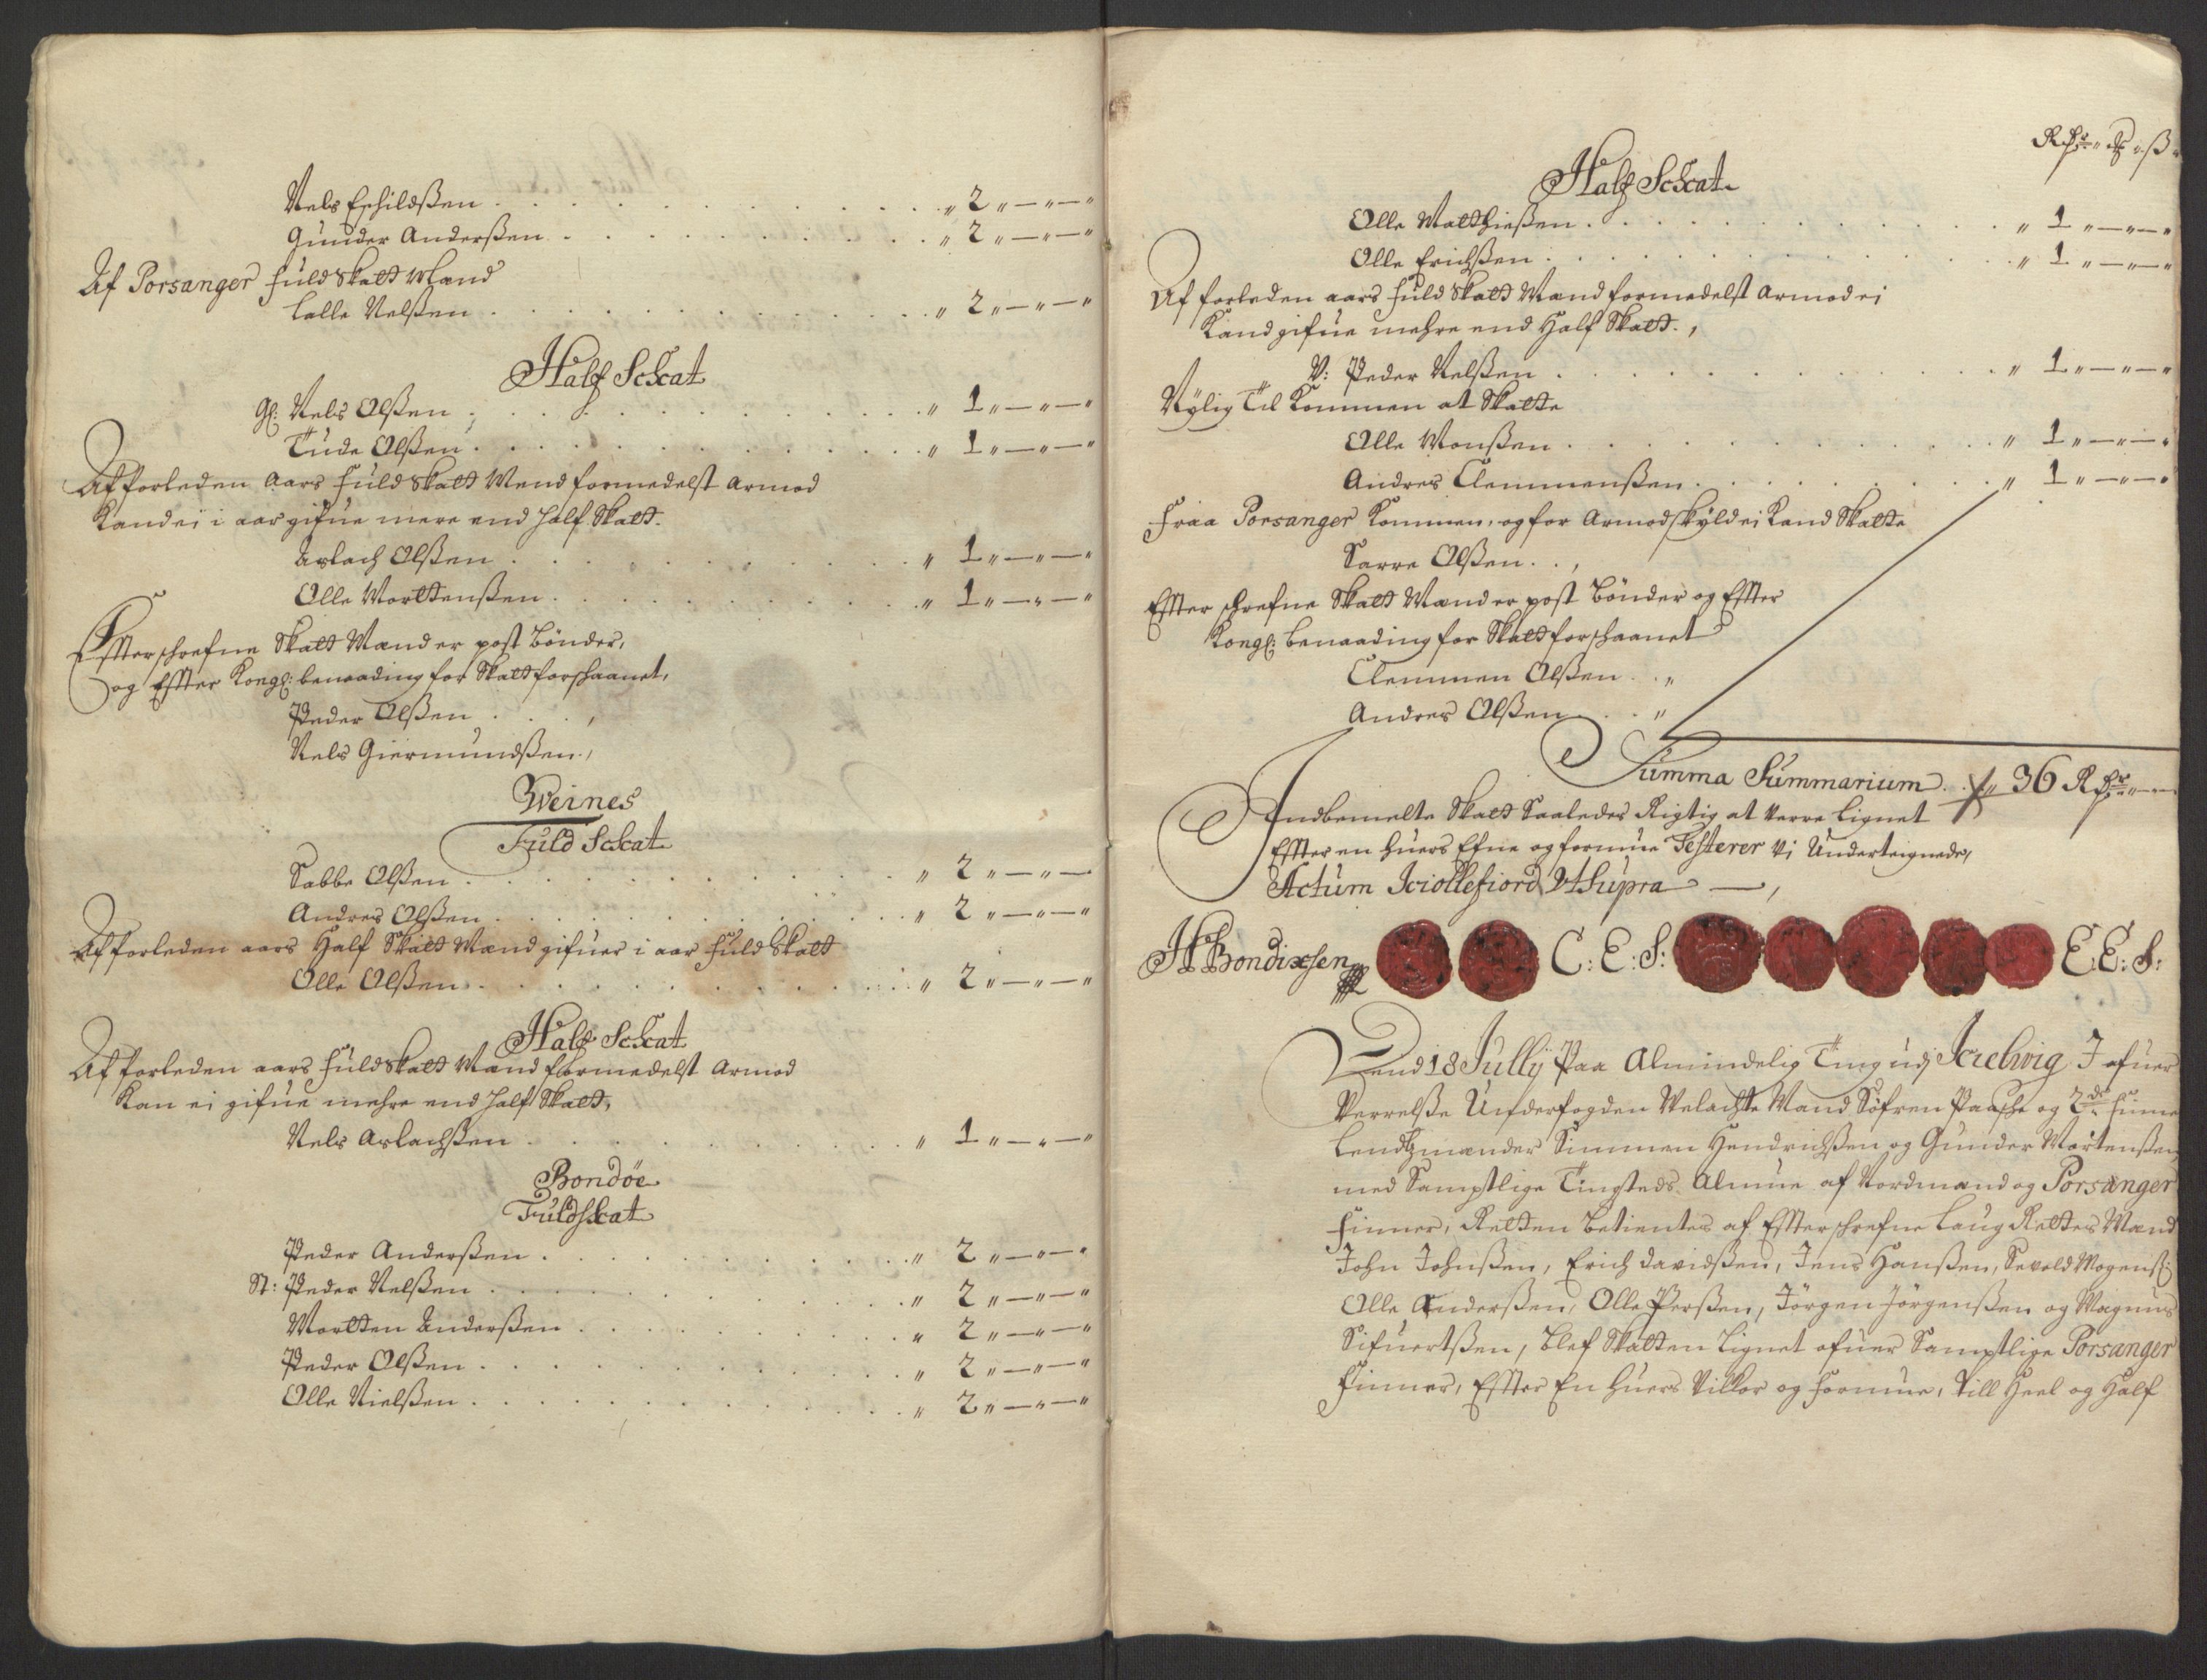 Nels Eschildßen . . . . . . . . . . . . „ 2 „ — „ — „
Gunder Anderßen . . . . . . . . . . „ 2 „ — „ — „
Af Porsanger fuld Skatt Mand
Lalle Nelßen . . . . . . . . . . . . „ 2 „ — „ — „
Half Schat
Gl: Nels Olßen . . . . . . . . . . . . „ 1 „ — „ — „
Tude Olßen . . . . . . . . . . . . „ 1 „ — „ — „
Af forleden aars fuld Skatt Mend formedelst armod
Kand ei i aar gifue mere end half Skatt.
Aslach Olßen . . . . . . . . . . . „ 1 „ — „ — „
Olle Morttenßen . . . . . . . . . . „ 1 „ — „ — „
Effterschrefne Skatt Mænd er post Bönder,
og Effter Kongl: benaading for Skatt forschaanet,
Peder Olßen . . . ,
Nels Giermundßen . ,
Weines
Fuld Schat
Sabbe Olßen . . . . . . . . . . . „ 2 „ — „ —
Andres Olßen . . . . . . . . . . . „ 2 „ — „ — „
Af forleden aars Half Skatt Mænd gifuer i aar fuld Skatt
Olle Olßen . . . . . . . . . . . . „ 2 „ — „ — „
Half Schat
Af forleden aars fuld Skatt Mænd formedelst Armod
Kan ei gifue mehre end half Skatt,
Nels Aslachßen . . . . . . . . . . „ 1 „ — „ — „
Bondöe
Fuld schat
Peder Anderßen . . . . . . . . . . „ 2 „ — „ — „
St: Peder Nelßen . . . . . . . . . . . „ 2 „ — „ — „
Mortten Anderßen . . . . . . . . . . „ 2 „ — „ — „
Peder Olßen . . . . . . . . . . . . „ 2 „ — „ — „
Olle Nielßen . . . . . . . . . . . . „ 2 „ — „ — „
Half Schat
Olle Matthießen . . . . . . . . . . . „ 1 „ — „ — „
Olle Erichßen . . . . . . . . . . . . „ 1 „ — „ — „
Af forleden aars fuld Skatt Mænd formedelst armod ei
Kand gifue mehre end Half Skatt . ,
V: Peder Nelßen . . . . . . . . . . . „ 1 „ — „ — „
Nylig Til Kommen at Skatte
Olle Monßen . . . . . . . . . . . . „ 1 „ — „ — „
Andres Clemmenßen . . . . . . . . . „ 1 „ — „ — „
Fraa Porsanger Kommen, og for Armod skyld ei Kand Skatte
Sarre Olßen . . ,
Effter schrefne Skatt Mænd er post Bönder og Effter
Kongl: benaading for Skatt forschaanet
Clemmen Olßen . . „
Andres Olßen . . . „
Summa Summarium . . 36 Rdr — —
Indbemelte Skatt Saaledes Rigtig at verre Lignet
Effter en huers Efne og formue Testerer vi Underteignede,
Actum Kiöllefiord Vt Supra — ,
H Bondixsen C: E: S: E: E: S:
Dend 18 Jullij Paa Almindelig Ting udj Kielwig J ofuer
Verrelße Underfogden Velachte Mand Söfren Paaske og 2de finne
Lendtzmænder Simmen Hendrichßen og Gunder Mortenßen,
med Samptlige Tingsteds Almue af Nordmænd og Porsanger
Finner, Retten Betientes af Effterschrefne Laug Rettes Mænd
John Johnßen, Erich Davidßen, Jens Hanßen, Sevold Mogenß:
Olle Anderßen, Olle Perßen, Jörgen Jörgenßen og Magnus
Sifuertßen, Blef Skatten Lignet ofuer Samptlige Porsanger
Finner, Effter En huers Vilkor og Formue, till Heel og Half